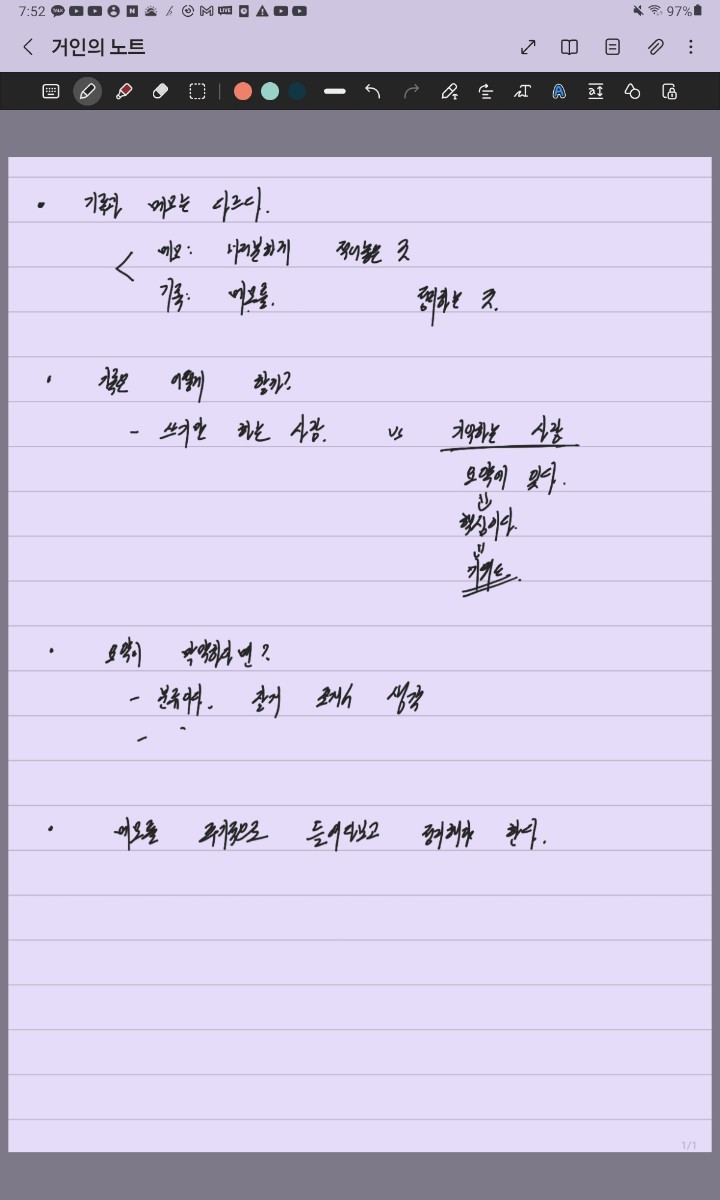 7:52 97%
거인의 노트
• 기록과 메모는 다르다.
메모: 너저분하게 적어놓은 것
기록: 메모를. 정리하는 것.
• 기록은 어떻게 할까?
- 쓰기만 하는 사람. vs 기억하는 사람
요약에 있다.
핵심이다.
• 요약이 막막하다면?
- 분류이다. 생각
-
• 메모를 주기적으로 들여다보고 정리해야 한다.
1/1